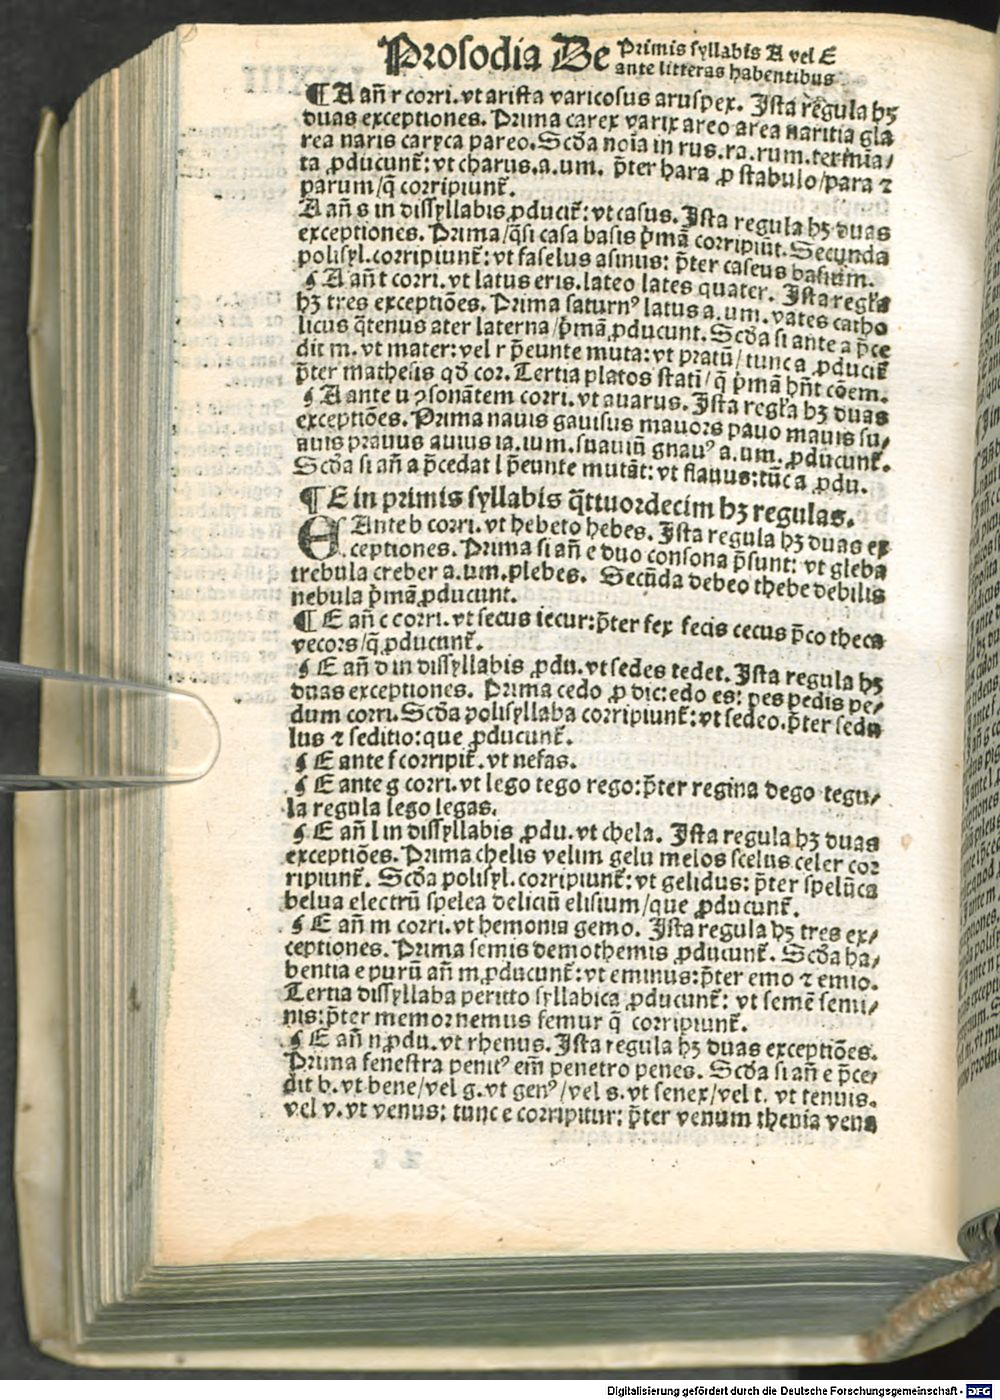 Prosodia De Primis syllabis A vel E
ante litteras habentibus
¶ A añ r corri. vt arista varicosus aruspex. Ista regula hꝫ
duas exceptiones. Prima carex varix areo area naritia gla
rea naris caryca pareo. Scḋa noīa in rus.ra.rum.termīa/
ta ꝓducunt̃: vt charus.a.um. p̄ter hara ꝓ stabulo/para ⁊
parum/q̄ corripiunt̃.
A añ s in dissyllabis ꝓducit̃: vt casus. Ista regula hꝫ duas
exceptiones. Prima/q̄si casa basis p̄mā corripiūt. Secunda
polisyl.corripiunt̃: vt faselus asinus: p̄ter caseus basium.
¶ A añ t corri. vt latus eris.lateo lates quater. Ista regła
hꝫ tres exceptiōes. Prima saturnꝰ latus a.um.vates catho
licus q̄tenus ater laterna/p̄mā ꝓducunt. Scḋa si ante a p̄ce
dit m. vt mater: vel r p̄eunte muta: vt pratū/tunc a ꝓducit̃
p̄ter mathesis qḋ cor. Tertia platos stati/q̄ p̄mā hñt cōem.
¶ A ante u ꝯsonātem corri. vt auarus. Ista regła hꝫ duas
exceptiōes. Prima nauis gauisus mauors pauo mauis su/
auis prauus auius ia.ium.suauiū gnauꝰ a.um. ꝓducunt̃.
Scḋa si añ a p̄cedat l p̄eunte mutāt: vt flauus: tūc a ꝓdu.
¶ E in primis syllabis q̄ttuordecim hꝫ regulas.
E Ante b corri. vt hebeto hebes. Ista regula hꝫ duas ex
ceptiones. Prima si añ e duo consona p̄sunt: vt gleba
trebula creber a.um.plebes. Secūda debeo thebe debilis
nebula p̄mā ꝓducunt.
¶ E añ c corri. vt secus iecur: p̄ter fex fecis cecus p̄co theca
vecors/q̄ ꝓducunt̃.
¶ E añ d in dissyllabis ꝓdu. vt sedes tedet. Ista regula hꝫ
duas exceptiones. Prima cedo ꝓ dic: edo es: pes pedis pe/
dum corri. Scḋa polisyllaba corripiunt̃: vt sedeo. p̄ter sedu
lus ⁊ seditio: que ꝓducunt̃.
¶ E ante f corripit̃. vt nefas.
¶ E ante g corri. vt lego tego rego: p̄ter regina dego tegu/
la regula lego legas.
¶ E añ l in dissyllabis ꝓdu. vt chela. Ista regula hꝫ duas
exceptiōes. Prima chelis velim gelu melos scelus celer cor
ripiunt̃. Scḋa polisyl. corripiunt̃: vt gelidus: p̄ter spelūca
belua electrū spelea deliciū elisium/que ꝓducunt̃.
¶ E añ m corri. vt hemonia gemo. Ista regula hꝫ tres ex/
ceptiones. Prima semis demothemis ꝓducunt̃. Scḋa ha/
bentia e purū añ m ꝓducunt̃: vt eminus: p̄ter emo ⁊ emio.
Tertia dissyllaba peritto syllabica ꝓducunt̃: vt semē semi/
nis: p̄ter memor nemus femur q̄ corripiunt̃.
¶ E añ n ꝓdu. vt rhenus. Ista regula hꝫ duas exceptiōes.
Prima fenestra penitꝰ em̄ penetro penes. Scḋa si añ e p̄ce/
dit b. vt bene/vel g. vt genꝰ/vel s. vt senex/vel t. vt tenuis.
vel v. vt venus: tunc e corripitur: p̄ter venum thenia vena
Digitalisierung gefördert durch die Deutsche Forschungsgemeinschaft - DFG